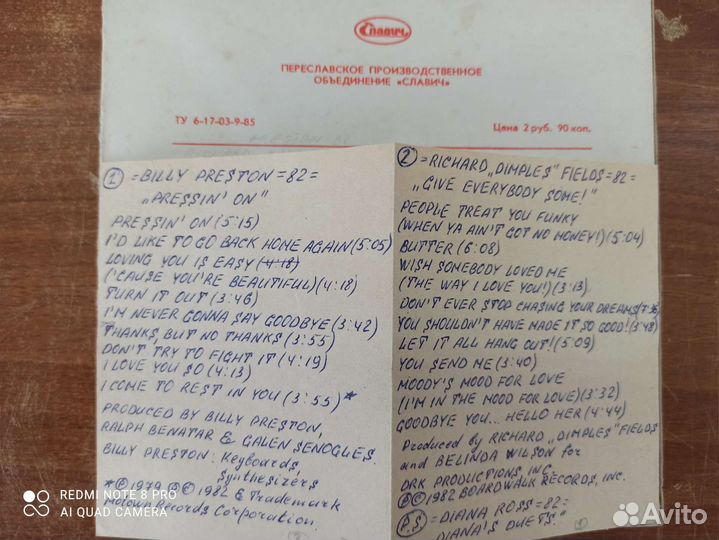 Славич
ПЕРЕСЛАВСКОЕ ПРОИЗВОДСТВЕННОЕ
ОБЪЕДИНЕНИЕ «СЛАВИЧ»
ТУ 6-17-03-9-85
Цена 2 руб. 90 коп.
① =BILLY PRESTON=82=
„PRESSIN' ON"
PRESSIN' ON (5:15)
I'D LIKE TO GO BACK HOME AGAIN (5:05)
LOVING YOU IS EASY (4:18)
('CAUSE YOU'RE BEAUTIFUL) (4:18)
TURN IT OUT (3:46)
I'M NEVER GONNA SAY GOODBYE (3:42)
THANKS, BUT NO THANKS (3:55)
DON'T TRY TO FIGHT IT (4:19)
I LOVE YOU SO (4:13)
I COME TO REST IN YOU (3:55)*
PRODUCED BY BILLY PRESTON,
RALPH BENATAR & GALEN SENOGLES.
BILLY PRESTON: Keyboards,
Synthesizers
*Ⓟ1979 Ⓟ© 1982 & Trademark
Motown Records Corporation.
② =RICHARD „DIMPLES" FIELDS=82=
„GIVE EVERYBODY SOME!"
PEOPLE TREAT YOU FUNKY
(WHEN YA AIN'T GOT NO MONEY!) (5:04)
BUTTER (6:08)
WISH SOMEBODY LOVED ME
(THE WAY I LOVE YOU!) (3:13)
DON'T EVER STOP CHASING YOUR DREAMS
YOU SHOULDN'T HAVE MADE IT SO GOOD! (3:48)
LET IT ALL HANG OUT! (5:09)
YOU SEND ME (3:40)
MOODY'S MOOD FOR LOVE
(I'M IN THE MOOD FOR LOVE) (3:32)
GOODBYE YOU... HELLO HER (4:44)
Produced by RICHARD „DIMPLES" FIELDS
and BELINDA WILSON for
DRK PRODUCTIONS, INC.
Ⓟ© 1982 BOARDWALK RECORDS, INC.
P.S. =DIANA ROSS=82=
„DIANA'S DUETS."
REDMI NOTE 8 PRO
AI QUAD CAMERA
Avito